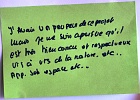 J'avais un peu peur de ce projet
mais je me suis aperçue qu'il
est très bien conçu et respectueux
vis à vis de la nature, etc...
App. son espace etc...